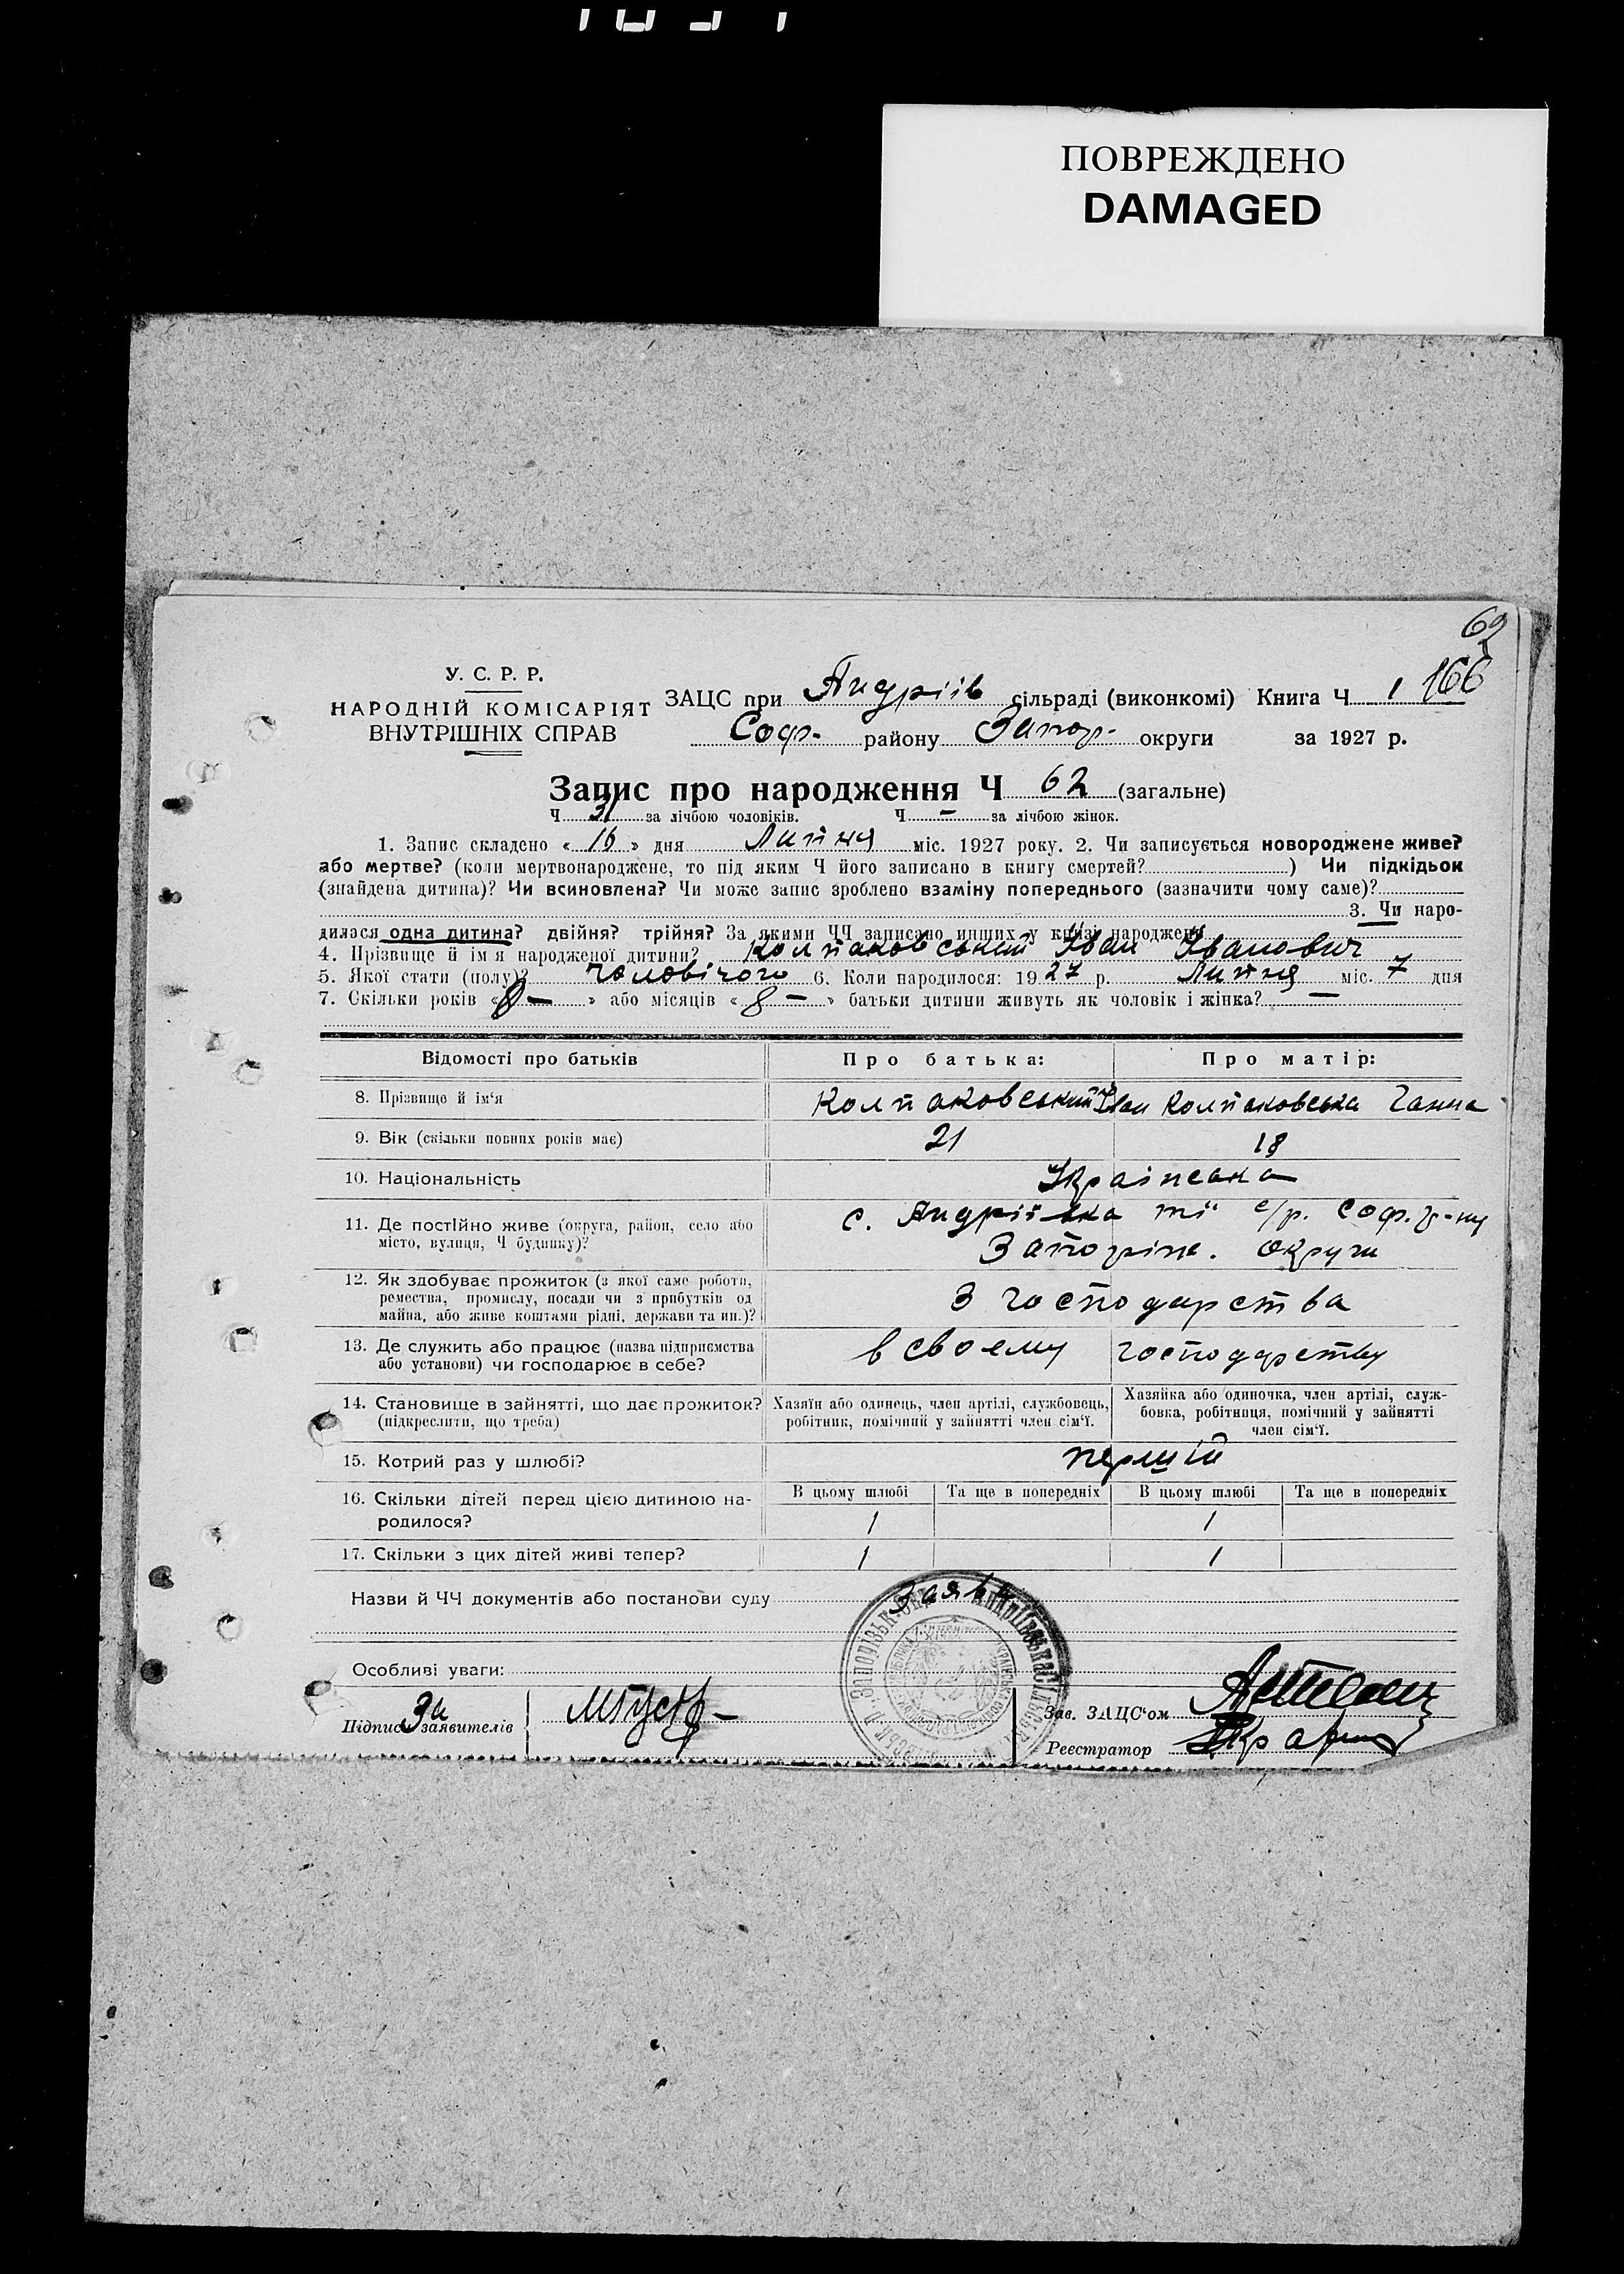 ПОВРЕЖДЕНО
DAMAGED
62
У. С. Р. Р.
НАРОДНІЙ КОМІСАРІЯТ
ВНУТРІШНІХ СПРАВ
ЗАЦС при Андріїв сільраді (виконкомі) Книга Ч 1 166
Соф. району Запор. округи за 1927 р.
Запис про народження Ч 62 (загальне)
Ч 31 за лічбою чоловіків. Ч — за лічбою жінок.
1. Запис складено « 16 » дня Липня міс. 1927 року. 2. Чи записується новороджене живе?
або мертве? (коли мертвонароджене, то під яким Ч його записано в книгу смертей? ) Чи підкідьок
(знайдена дитина)? Чи всиновлена? Чи може запис зроблено взаміну попереднього (зазначити чому саме)?
3. Чи наро-
дилася одна дитина? двійня? трійня? За якими ЧЧ записано инших у книзі народжень
4. Прізвище й ім'я народженої дитини? Колпаковський Іван Іванович
5. Якої стати (полу)? чоловічого 6. Коли народилося: 1927 р. Липня міс. 7 дня
7. Скільки років « — » або місяців « 8 — » батьки дитини живуть як чоловік і жінка? —
Відомості про батьків
Про батька:
Про матір:
8. Прізвище й ім'я
Колпаковський Іван
Колпаковська Ганна
9. Вік (скільки повних років має)
21
18
10. Національність
Українська
11. Де постійно живе (округа, район, село або
місто, вулиця, Ч будинку)?
с. Андріївка тії с/р. Соф. р-ну
Запоріж. округи
12. Як здобуває прожиток (з якої саме роботи,
ремества, промислу, посади чи з прибутків од
майна, або живе коштами рідні, держави та ин.)?
З господарства
13. Де служить або працює (назва підприємства
або установи) чи господарює в себе?
в своему господарству
14. Становище в зайнятті, що дає прожиток?
(підкреслити, що треба)
Хазяїн або одинець, член артілі, службовець,
робітник, помічний у зайнятті член сім'ї.
Хазяйка або одиночка, член артілі, служ-
бовка, робітниця, помічний у зайнятті
член сім'ї.
15. Котрий раз у шлюбі?
перший
16. Скільки дітей перед цією дитиною на-
родилося?
В цьому шлюбі
Та ще в попередніх
В цьому шлюбі
Та ще в попередніх
1
1
17. Скільки з цих дітей живі тепер?
1
1
Назви й ЧЧ документів або постанови суду Заява
Особливі уваги:
За
Підпис заявителів
Зав. ЗАЦС'ом
Реєстратор